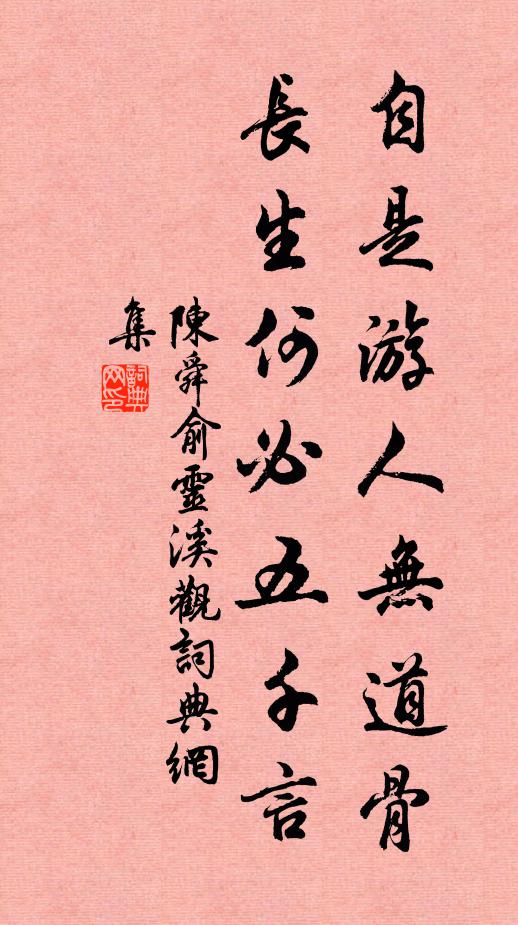 自是游人無道骨
長生何必五千言
陳舜俞靈溪觀詞典網
集
詞典网印